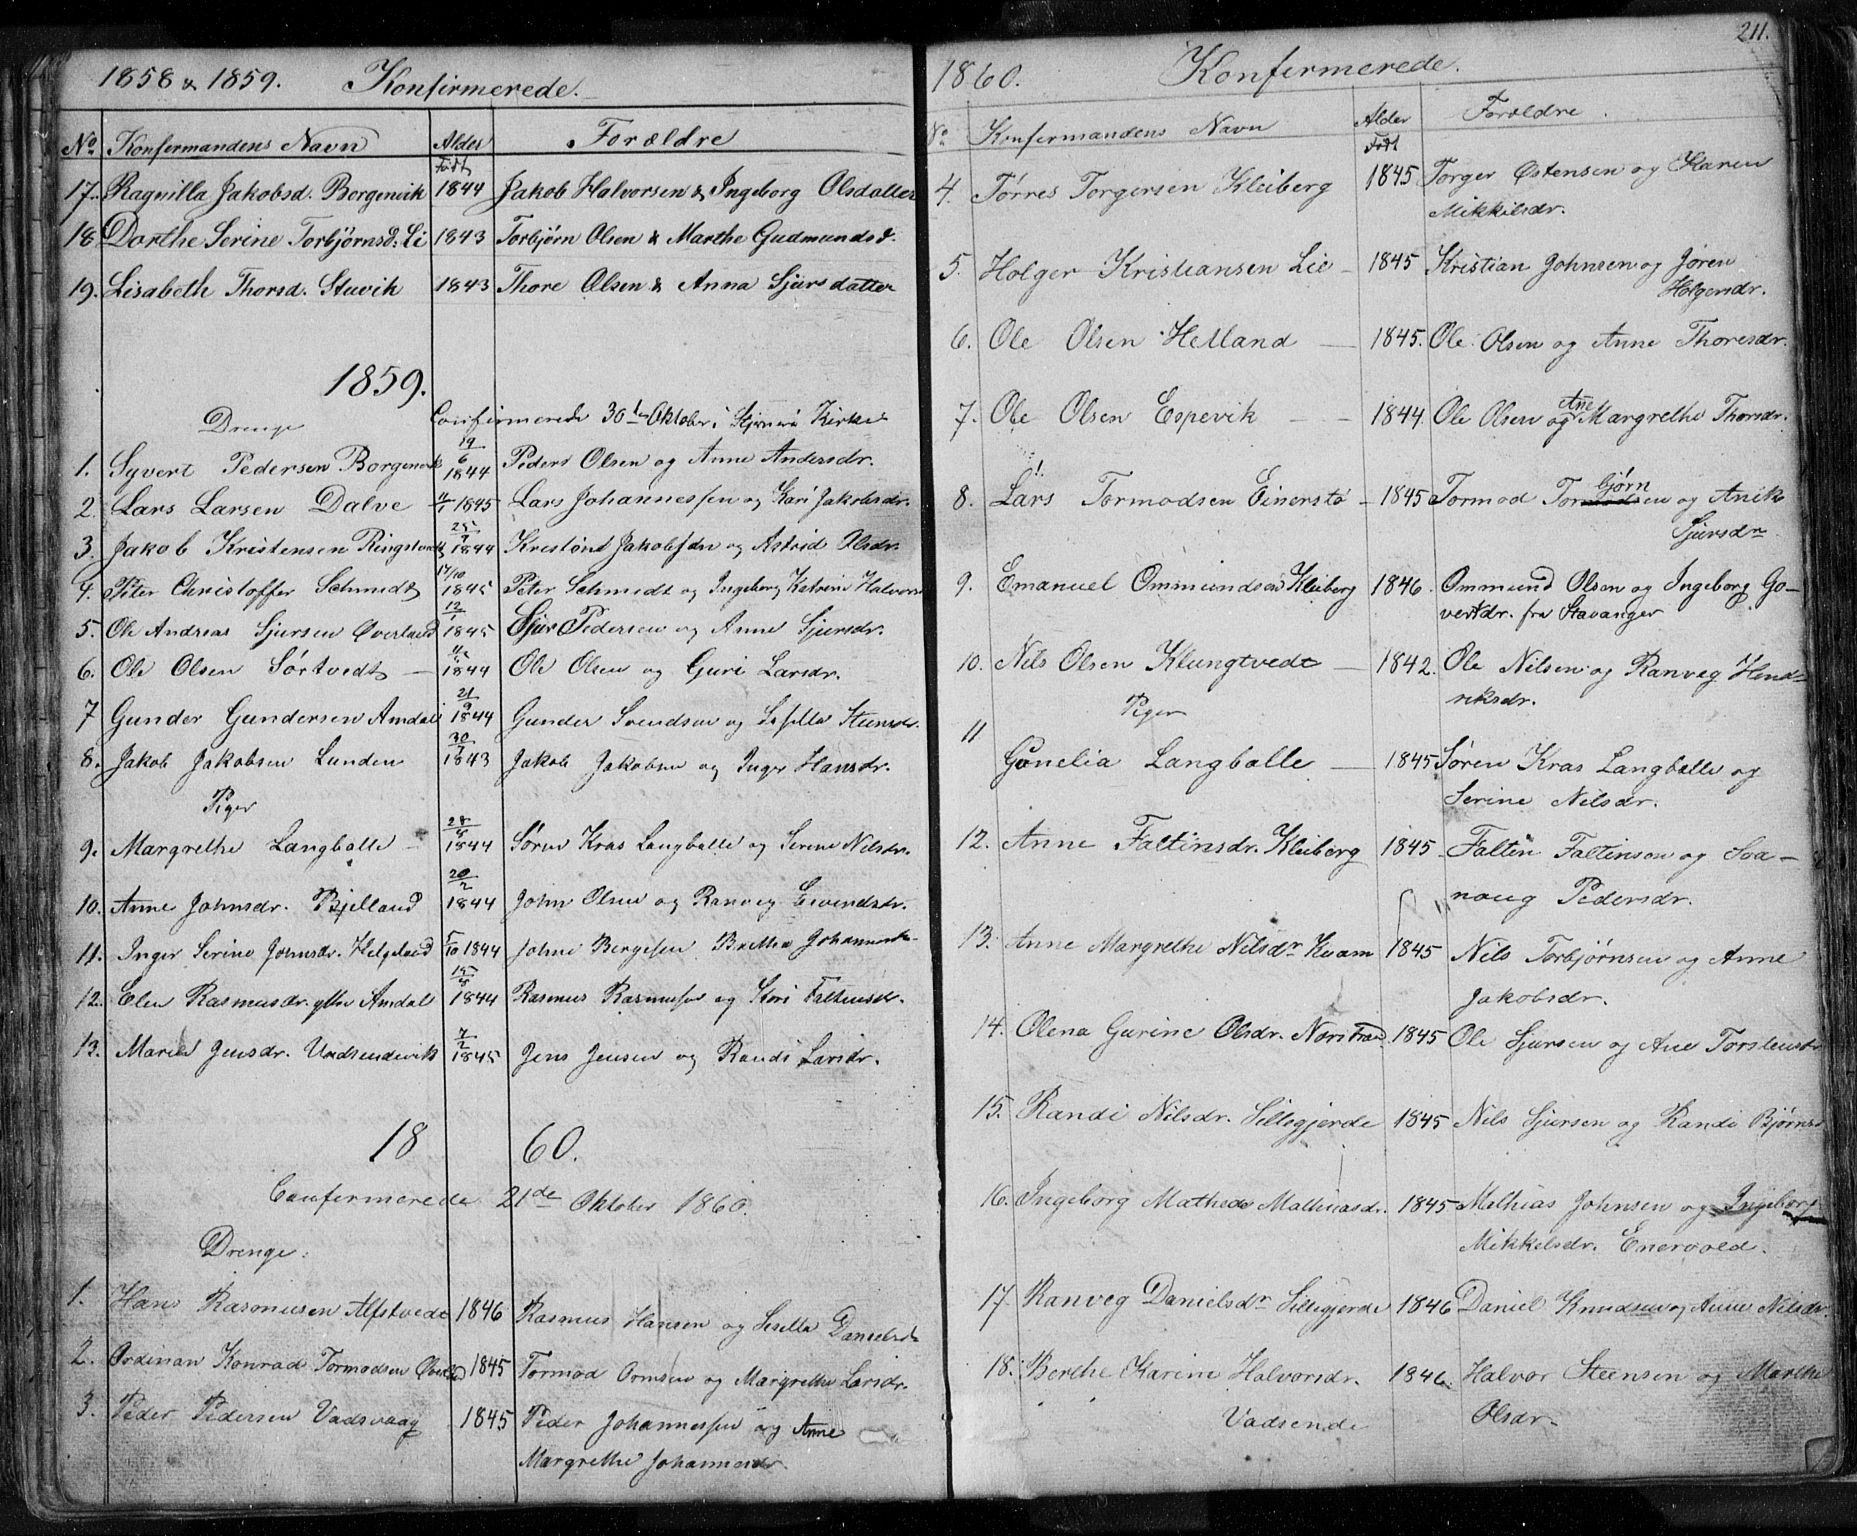 1858 & 1859. Konfirmerede.
No. Konfermandens Navn Alder Født Forældre
17. Ragnilla Jakobsd. Borgenvik 1844 Jakob Halvorsen & Ingeborg Olsdatter
18 Dorthe Serine Torbjørnsd: Li 1843 Torbjørn Olsen & Marthe Gudmundsd.
19. Lisabeth Thorsd. Stuvik 1843 Thore Olsen & Anna Sjursdatter
1859.
Drenge Confirmerede 30te Oktober i Kirke
1. Syvert Pedersen Borgenvik 19/6 1844 Peder Olsen og Anne Andersdr.
2. Lars Larsen Dalve 1845 Lars Johannessen og Kari Jakobsdr.
3. Jakob Kristensen 1844 Jakobsen og Astrid Olsdr.
4. Peter Christoffer Schmidt 17/10 1845 Peter Schmidt og Ingeborg Katrine Halvors
5. Ole Andreas Sjursen Øverland 12/1 1845 Sjur Pedersen og Anne Sjursdr.
6. Ole Olsen Sørtvedt 1844 Ole Olsen og Guri Larsdr.
7 Gunder Gundersen Amdal 21/9 1844 Gunder Svendsen og Steensdr.
8. Jakob Jakobsen Lunden 1843 Jakob Jakobsen og Inger Hansdr.
Piger
9. Margrethe Langballe 28/8 1844 Søren Kras Langballe og Serine Nilsdr.
10. Anne Johnsdr. Bjelland 20/2 1844 John Olsen og Ranveg
11. Inger Serine Johnsdr. Helgeland 5/10 1844 John Bergesen
12. Elen Rasmusdr. ytre Amdal 15/8 1844 Rasmus Rasmussen og Faltensdr.
13. Maria Jensdr. Vadsendevik 7/2 1845 Jens Jensen og Randi Larsdr.
18 60.
Confermerede 21de Oktober 1860.
Drenge:
1. Hans Rasmusen Alfstvedt 1846 Rasmus Hansen og Sesilla Danielsdr
2. Ordinan Konrad Tormodsen 1845 Tormod Ormsen og Margrethe Larsdr.
3. Peder Pedersen Vadsvaag 1845 Peder Johannessen og Anne
Margrethe Johannesdr.
211.
1860. Konfermerede.
No. Konfermandens Navn Alder Født Forældre.
4. Tørres Torgersen Kleiberg 1845 Torger Østensen og Karen
Mikkelsdr.
5. Holger Kristiansen Lie 1845 Kristian Johnsen og Jøren
Holgersdr.
6. Ole Olsen Helland 1845. Ole Olsen og Anne Thoresdr.
7. Ole Olsen Espevik 1844 Ole Olsen og Ane Margrethe Thorsdr.
8. Lars Tormodsen Einerstø 1845 Tormod Torbjørnsen og Anike
Sjursdr
9. Emanuel Ommundsen Kleiberg 1846. Ommund Olsen og Ingeborg Go-
vertdr. fra Stavanger
10. Nils Olsen Klungtvedt 1842. Ole Nilsen og Ranveg Hend-
riksdr.
Piger
11 Gonelia Langballe 1845 Søren Kras Langballe og
Serine Nilsdr.
12. Anne Faltinsdr. Kleiberg 1845 Faltin Faltinsen og Soa-
noug Pedersdr.
13. Anne Margrethe Nilsdr Kvam 1845 Nils Torbjørnsen og Anne
Jakobsdr.
14. Olena Gurine Olsdr. Norstrand 1845 Ole Sjursen og Ane Torstensdr
15. Randi Nilsdr. Sillegjerde 1845 Nils Sjursen og Randi Bjørnsd
16. Ingeborg Mathea Mathiasdr. 1845 Mathias Johnsen og Ingeborg
Mikkelsdr. Enervold.
17. Ranveg Danielsdr Sillegjerde 1846 Daniel Knudsen og Anne Nilsdr.
18. Berthe Karine Halvorsdr. 1846. Halvor Steensen og Marthe
Vadsende Olsdr.